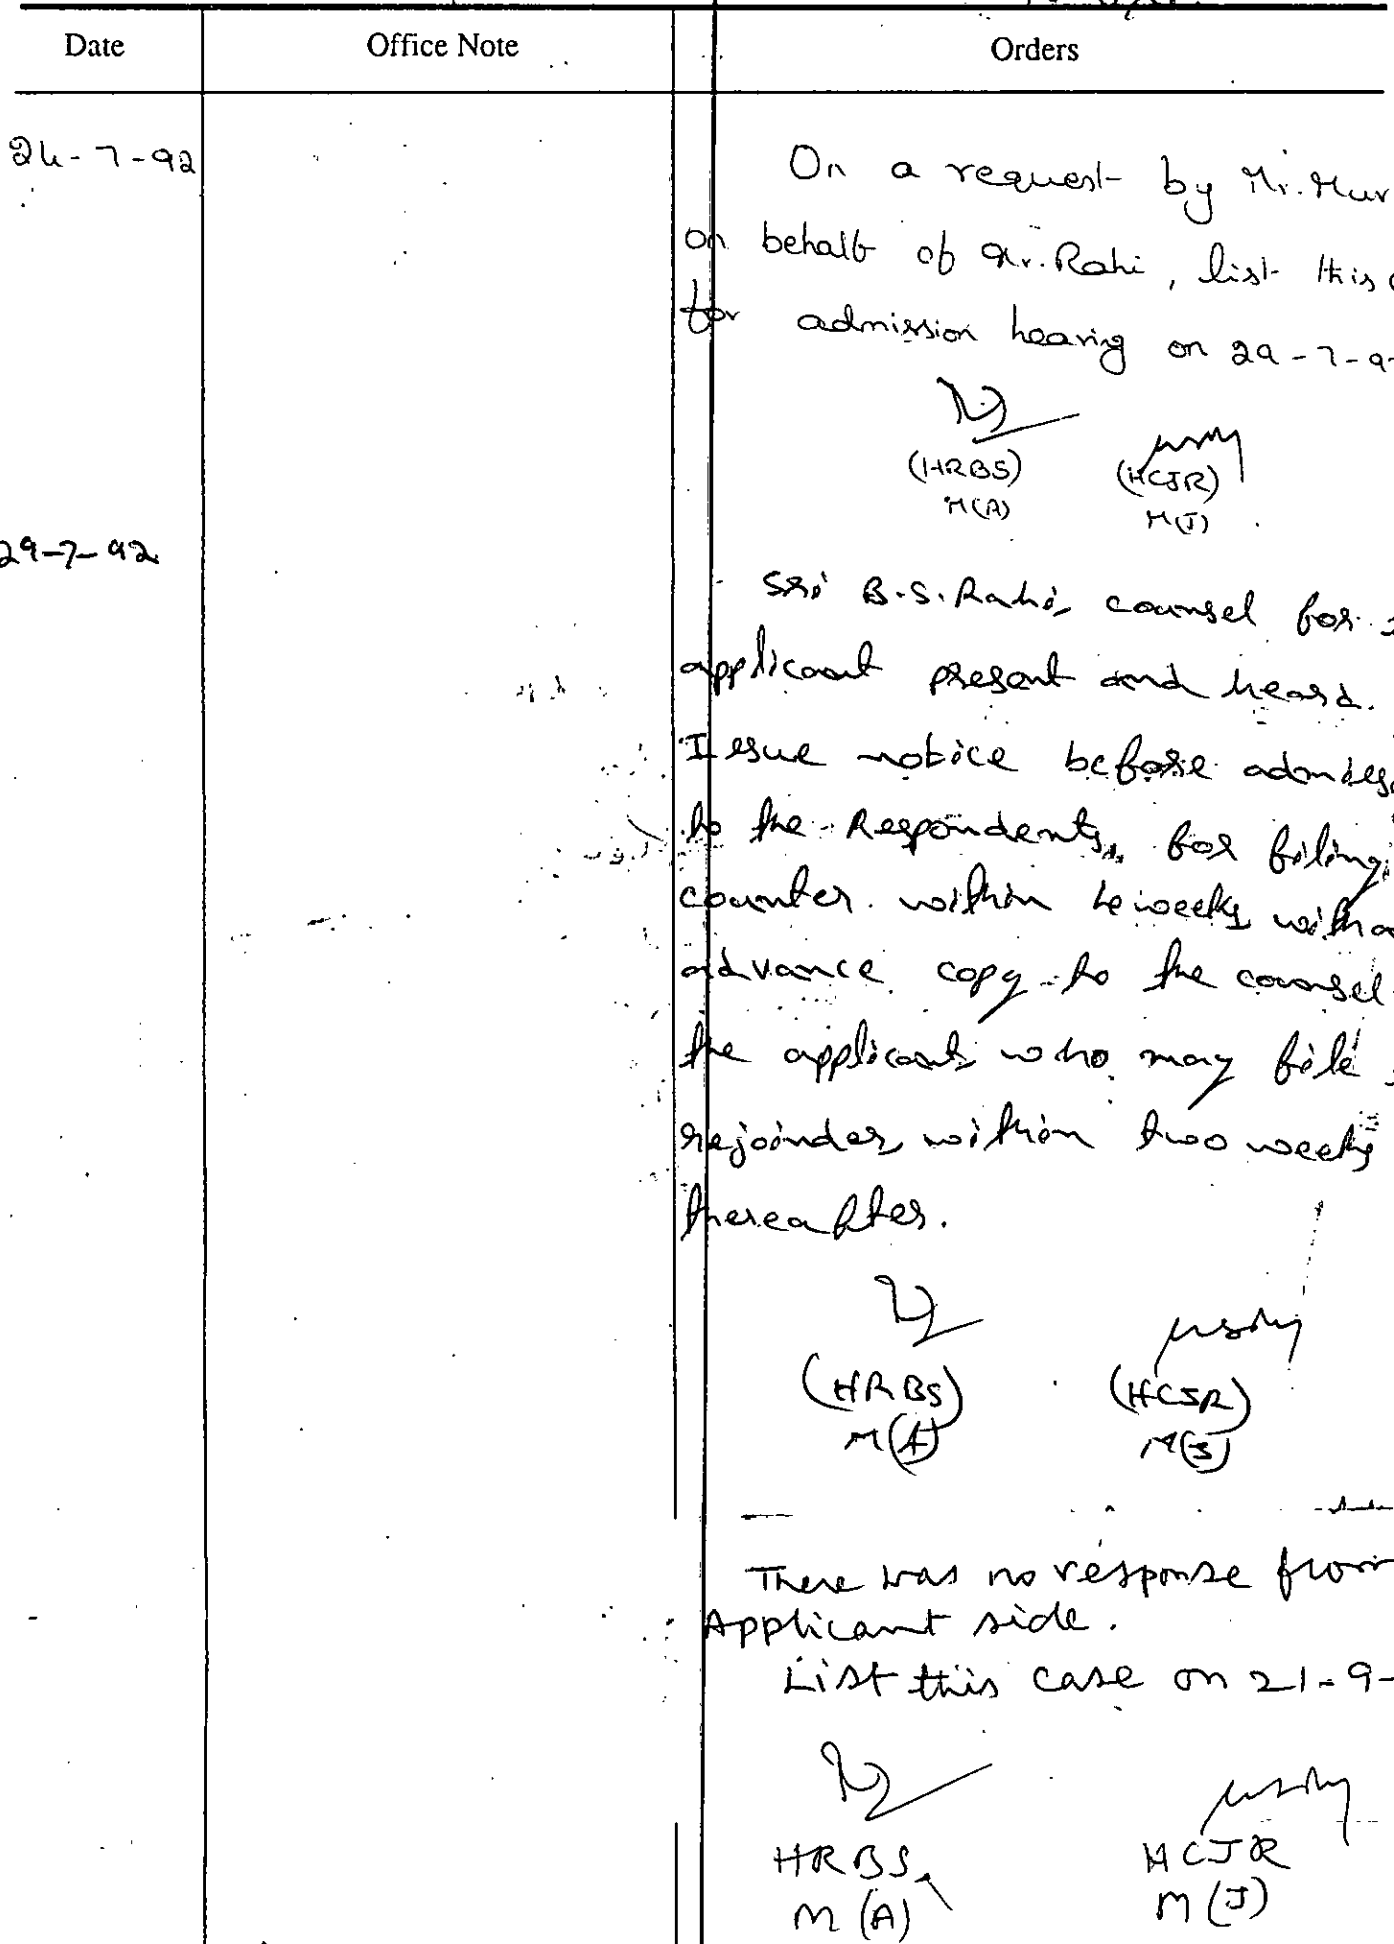 Date Office Note Orders
24-7-92
On a request by Mr. Mur
on behalf of Mr. Rahi, list this
for admission hearing on 29-7-9
(HRBS) (HCJR)
M(A) M(J)
29-7-92
Sri B.S. Rahi, counsel for
applicant present and heard.
Issue notice before admiss
to the Respondents, for filing
counter within weeks with
advance copy to the counsel
the applicant, who may file
rejoinder, within two weeks
thereafter.
(HRBS) (HCJR)
M(A) M(J)
There was no response from
Applicant side.
List this case on 21-9-
HRBS HCJR
M(A) M(J)